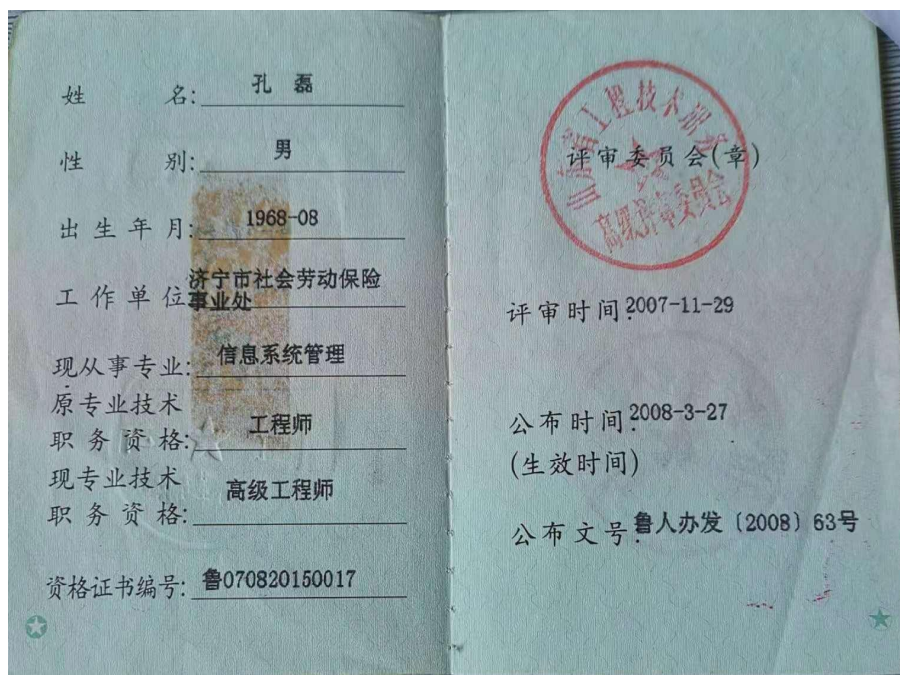 姓 名: 孔 磊
性 别: 男
出生年月: 1968-08
工作单位 济宁市社会劳动保险
事业处
现从事专业: 信息系统管理
原专业技术
职务资格: 工程师
现专业技术
职务资格: 高级工程师
资格证书编号: 鲁070820150017
山东省工程技术职务
高级评审委员会
评审委员会(章)
评审时间: 2007-11-29
公布时间: 2008-3-27
(生效时间)
公布文号: 鲁人办发〔2008〕63号